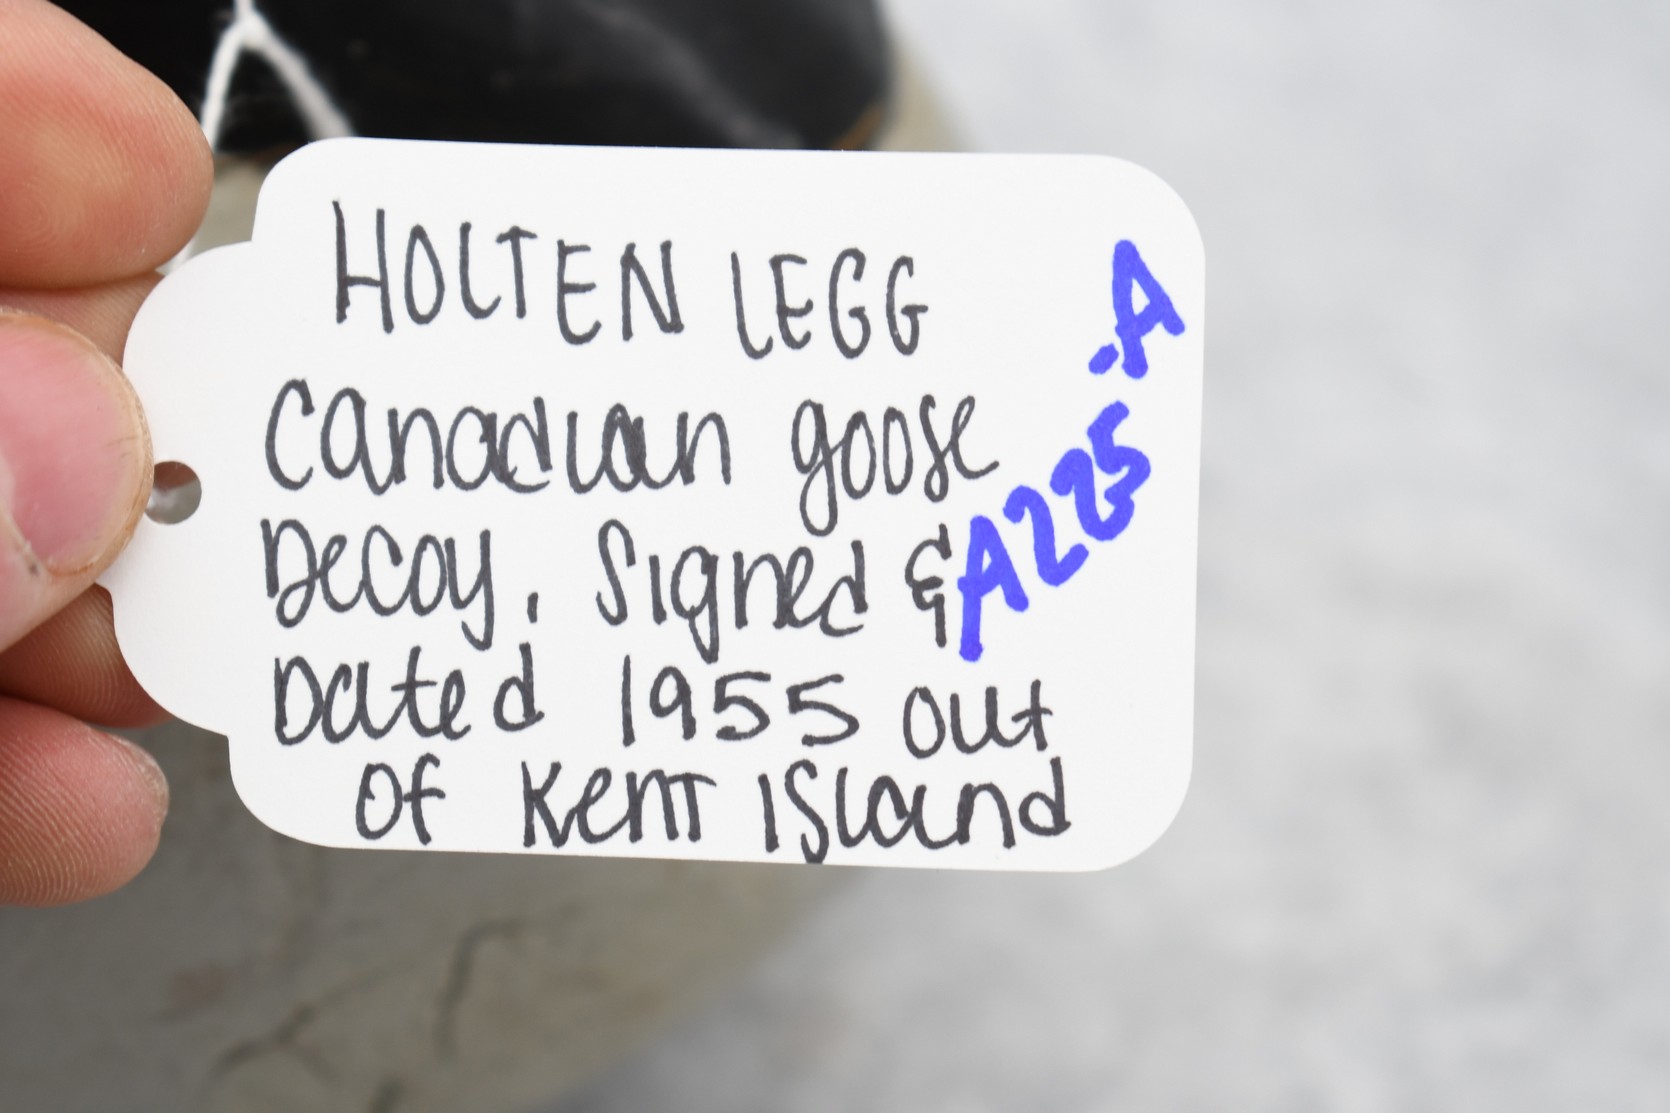 HOLTEN LEGG
Canadian goose
Decoy. Signed &
Dated 1955 out
of Kent Island
A225-A